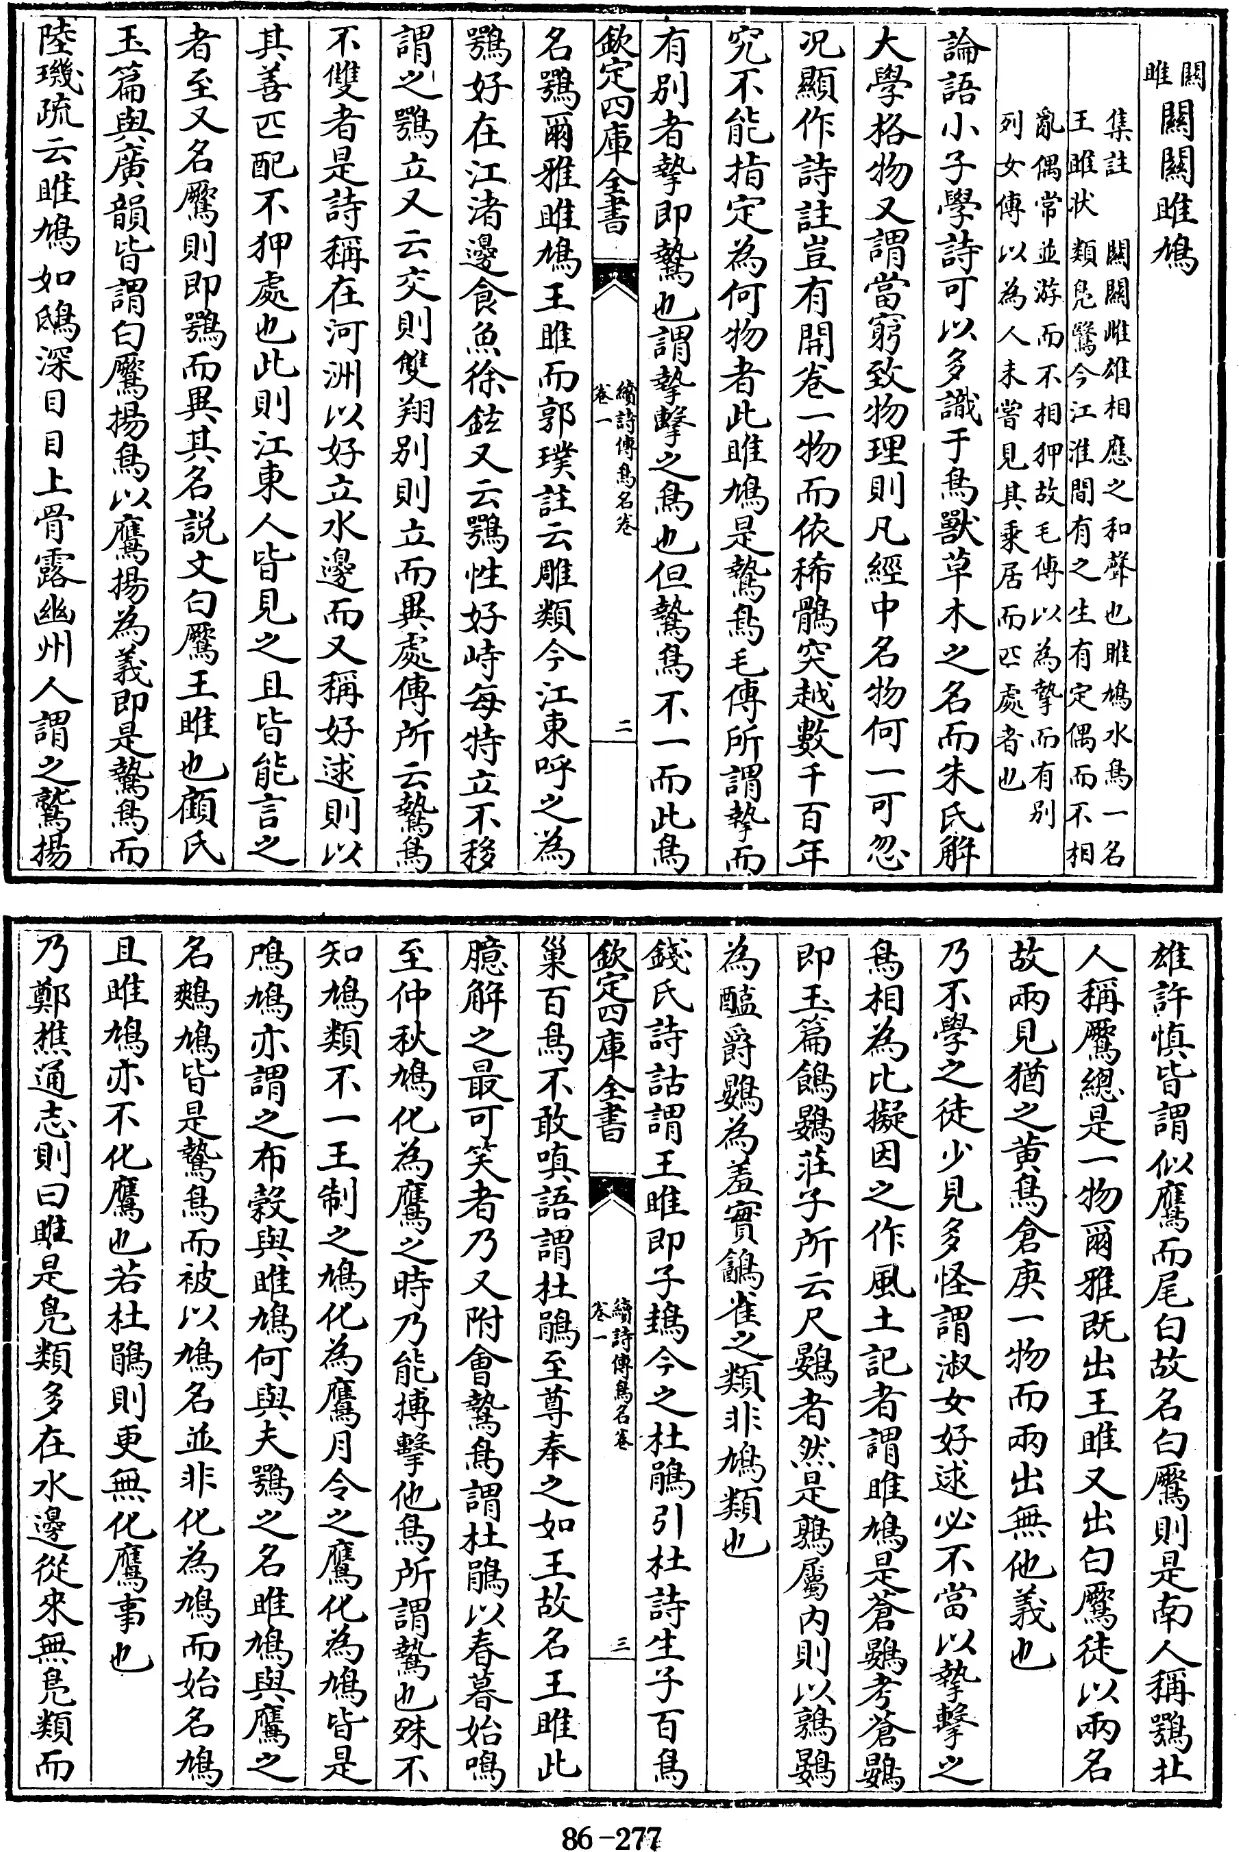 關雎
關關雎鳩
集註 關關雌雄相應之和聲也雎鳩水鳥一名
王雎狀類鳧鷖今江淮間有之生有定偶而不相
亂偶常並游而不相狎故毛傳以為摯而有別
列女傳以為人未嘗見其乘居而匹處者也
論語小子學詩可以多識于鳥獸草木之名而朱氏解
大學格物又謂當窮致物理則凡經中名物何一可忽
況顯作詩註豈有開卷一物而依稀鶻突越數千百年
究不能指定為何物者此雎鳩是鷙鳥毛傳所謂摯而
有別者摯即鷙也謂摯擊之鳥也但鷙鳥不一而此鳥
欽定四庫全書
續詩傳鳥名卷
卷一
二
名鶚爾雅雎鳩王雎而郭璞註云雕類今江東呼之為
鶚好在江渚邊食魚徐鉉又云鶚性好峙每特立不移
謂之鶚立又云交則雙翔別則立而異處傳所云鷙鳥
不雙者是詩稱在河洲以好立水邊而又稱好逑則以
其善匹配不狎處也此則江東人皆見之且皆能言之
者至又名鷢則即鶚而異其名說文白鷢王雎也顧氏
玉篇與廣韻皆謂白鷢揚鳥以鷹揚為義即是鷙鳥而
陸璣疏云雎鳩如鴟深目目上骨露幽州人謂之鷲揚
雄許慎皆謂似鷹而尾白故名白鷢則是南人稱鶚北
人稱鷢總是一物爾雅既出王雎又出白鷢徒以兩名
故兩見猶之黃鳥倉庚一物而兩出無他義也
乃不學之徒少見多怪謂淑女好逑必不當以摯擊之
鳥相為比擬因之作風土記者謂雎鳩是蒼鷃考蒼鷃
即玉篇鴿鷃莊子所云尺鷃者然是鶉屬內則以鶉鷃
為醢爵鷃為羞實鷭雀之類非鳩類也
錢氏詩詁謂王雎即子鳺今之杜鵑引杜詩生子百鳥
欽定四庫全書
續詩傳鳥名卷
卷一
三
巢百鳥不敢嗔語謂杜鵑至尊奉之如王故名王雎此
臆解之最可笑者乃又附會鷙鳥謂杜鵑以春暮始鳴
至仲秋鳩化為鷹之時乃能搏擊他鳥所謂鷙也殊不
知鳩類不一王制之鳩化為鷹月令之鷹化為鳩皆是
鳲鳩亦謂之布穀與雎鳩何與夫鶚之名雎鳩與鷹之
名鷞鳩皆是鷙鳥而被以鳩名並非化為鳩而始名鳩
且雎鳩亦不化鷹也若杜鵑則更無化鷹事也
乃鄭樵通志則曰雎是鳧類多在水邊從來無鳧類而
86-277